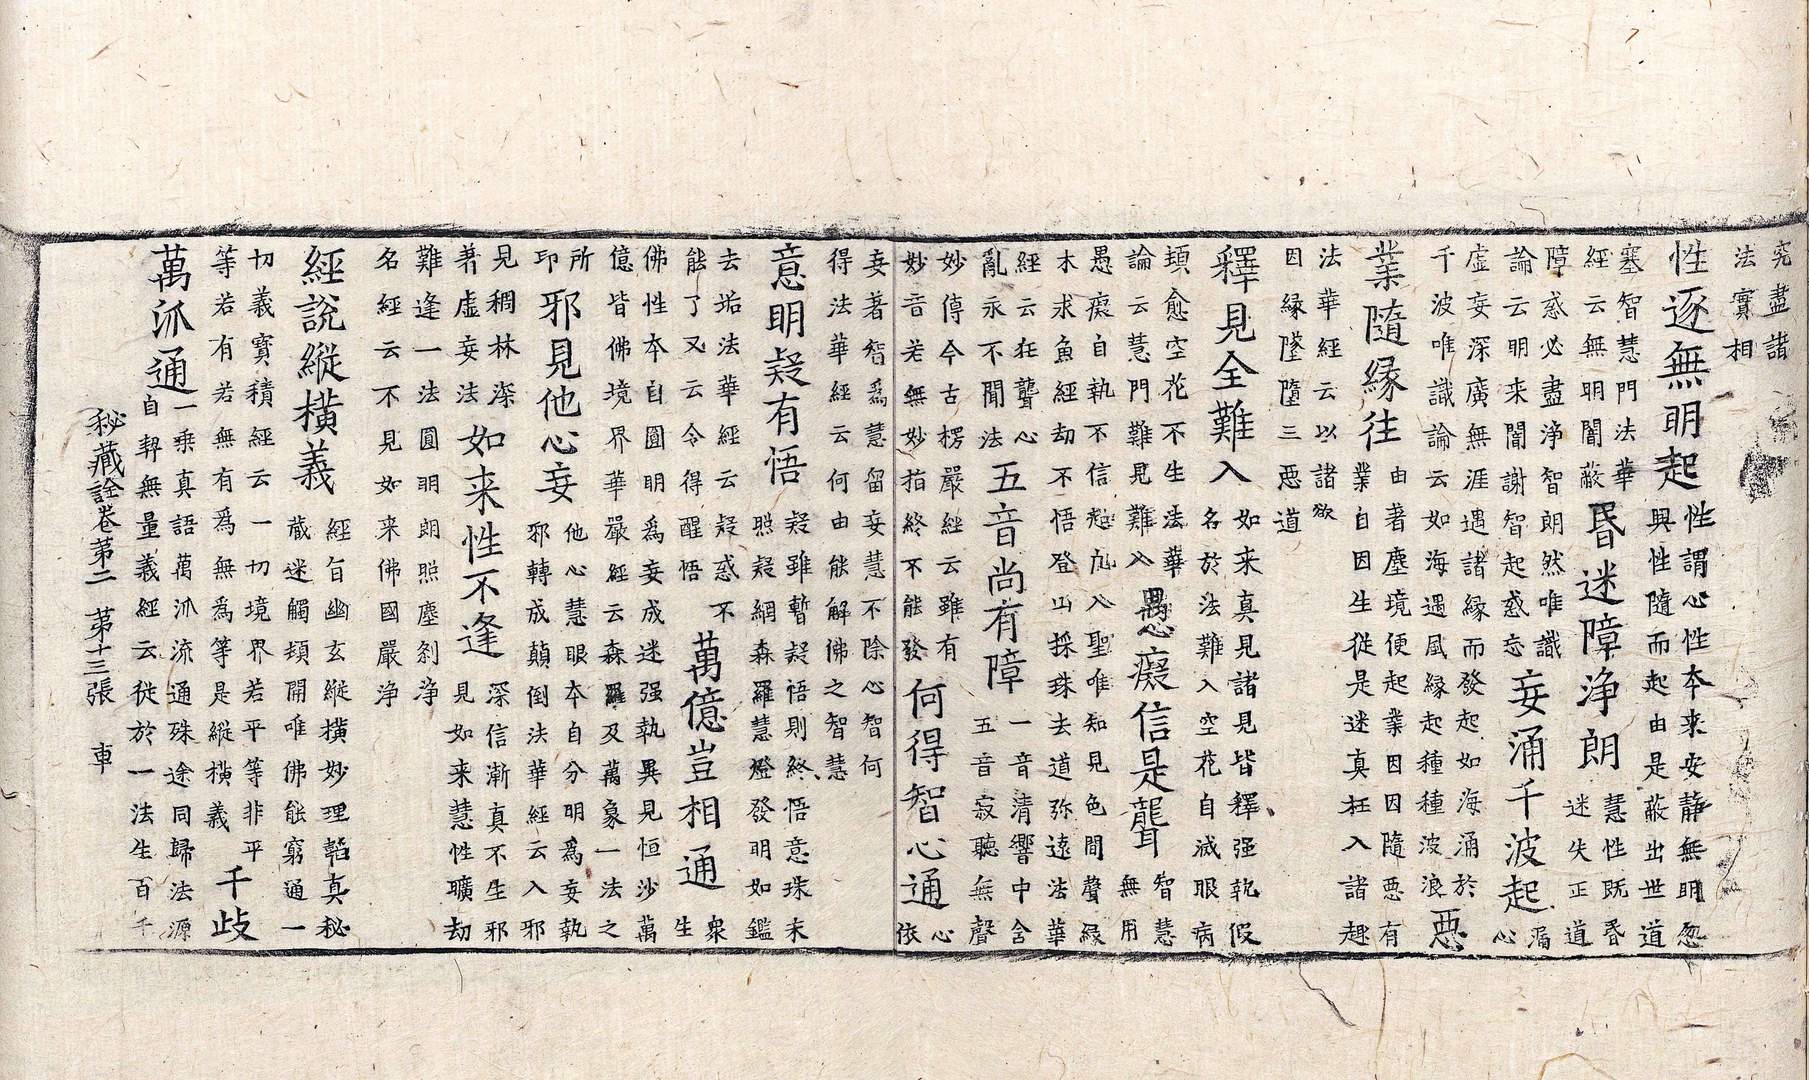 究盡諸
法實相
性逐無明起
性謂心性本来安静無明忽
興性隨而起由是蔽出世道
塞智慧門法華
經云無明闇蔽
昏迷障浄朗
慧性既昏
迷失正道
障惑必盡浄智朗然唯識
論云明来闇謝智起惑忘
妄涌千波起
漏
心
虚妄深廣無涯遇諸縁而發起如海涌於
千波唯識論云如海遇風縁起種種波浪
惡
業隨縁往
由著塵境便起業因因隨惡有
業自因生從是迷真枉入諸趣
法華經云以諸欲
因縁墜墮三惡道
釋見全難入
如来真見諸見皆釋强執假
名於法難入空花自滅眼病
頊愈空花不生法華
論云慧門難見難入
愚癡信是聾
智慧
無用
愚癡自執不信超凡入聖唯知見色間聲縁
木求魚經劫不悟登山採珠去道弥遠法華
經云在聾心
亂永不聞法
五音尚有障
一音清響中含
五音寂聽無聲
妙停今古楞嚴經云雖有
妙音若無妙指終不能發
何得智心通
心
依
妄著智爲慧留妄慧不除心智何
得法華經云何由能解佛之智慧
意明疑有悟
疑雖暫疑悟則終悟意珠未
照疑網森羅慧燈發明如鑑
去垢法華經云疑惑不
能了又云令得醒悟
萬億豈相通
衆
生
佛性本自圓明爲妄成迷强執異見恒沙萬
億皆佛境界華嚴經云森羅及萬象一法之
所
印
邪見他心妄
他心慧眼本自分明爲妄執
邪轉成顛倒法華經云入邪
見稠林深
著虚妄法
如来性不逢
深信漸真不生邪
見如来慧性曠劫
難逢一法圓明朗照塵刹浄
名經云不見如来佛國嚴浄
經說縱横義
經旨幽玄縱横妙理韜真秘
藏迷觸頊開唯佛能窮通一
切義寳積經云一切境界若平等非平
等若有若無有爲無爲等是縱横義
千歧
萬泒通
一乗真語萬泒流通殊途同歸法源
自契無量義經云從於一法生百千
秘藏詮卷第二 第十三張 車